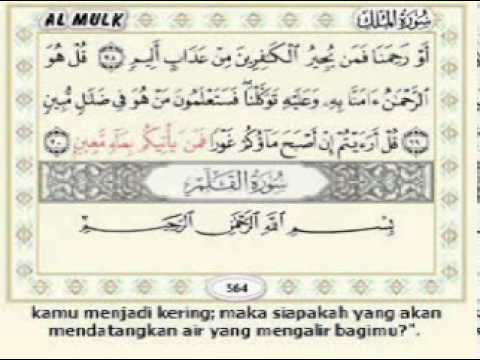 AL MULK سورة الملك
أَوْ رَحِمَنَا فَمَن يُجِيرُ الْكَافِرِينَ مِنْ عَذَابٍ أَلِيمٍ ٢٨ قُلْ هُوَ
الرَّحْمَٰنُ ءَامَنَّا بِهِ وَعَلَيْهِ تَوَكَّلْنَا فَسَتَعْلَمُونَ مَنْ هُوَ فِي ضَلَالٍ مُّبِينٍ
٢٩ قُلْ أَرَءَيْتُمْ إِنْ أَصْبَحَ مَاؤُكُمْ غَوْرًا فَمَن يَأْتِيكُم بِمَاءٍ مَّعِينٍ ٣٠
سُورَةُ الْقَلَمِ
بِسْمِ اللَّهِ الرَّحْمَٰنِ الرَّحِيمِ
564
kamu menjadi kering; maka siapakah yang akan
mendatangkan air yang mengalir bagimu?".